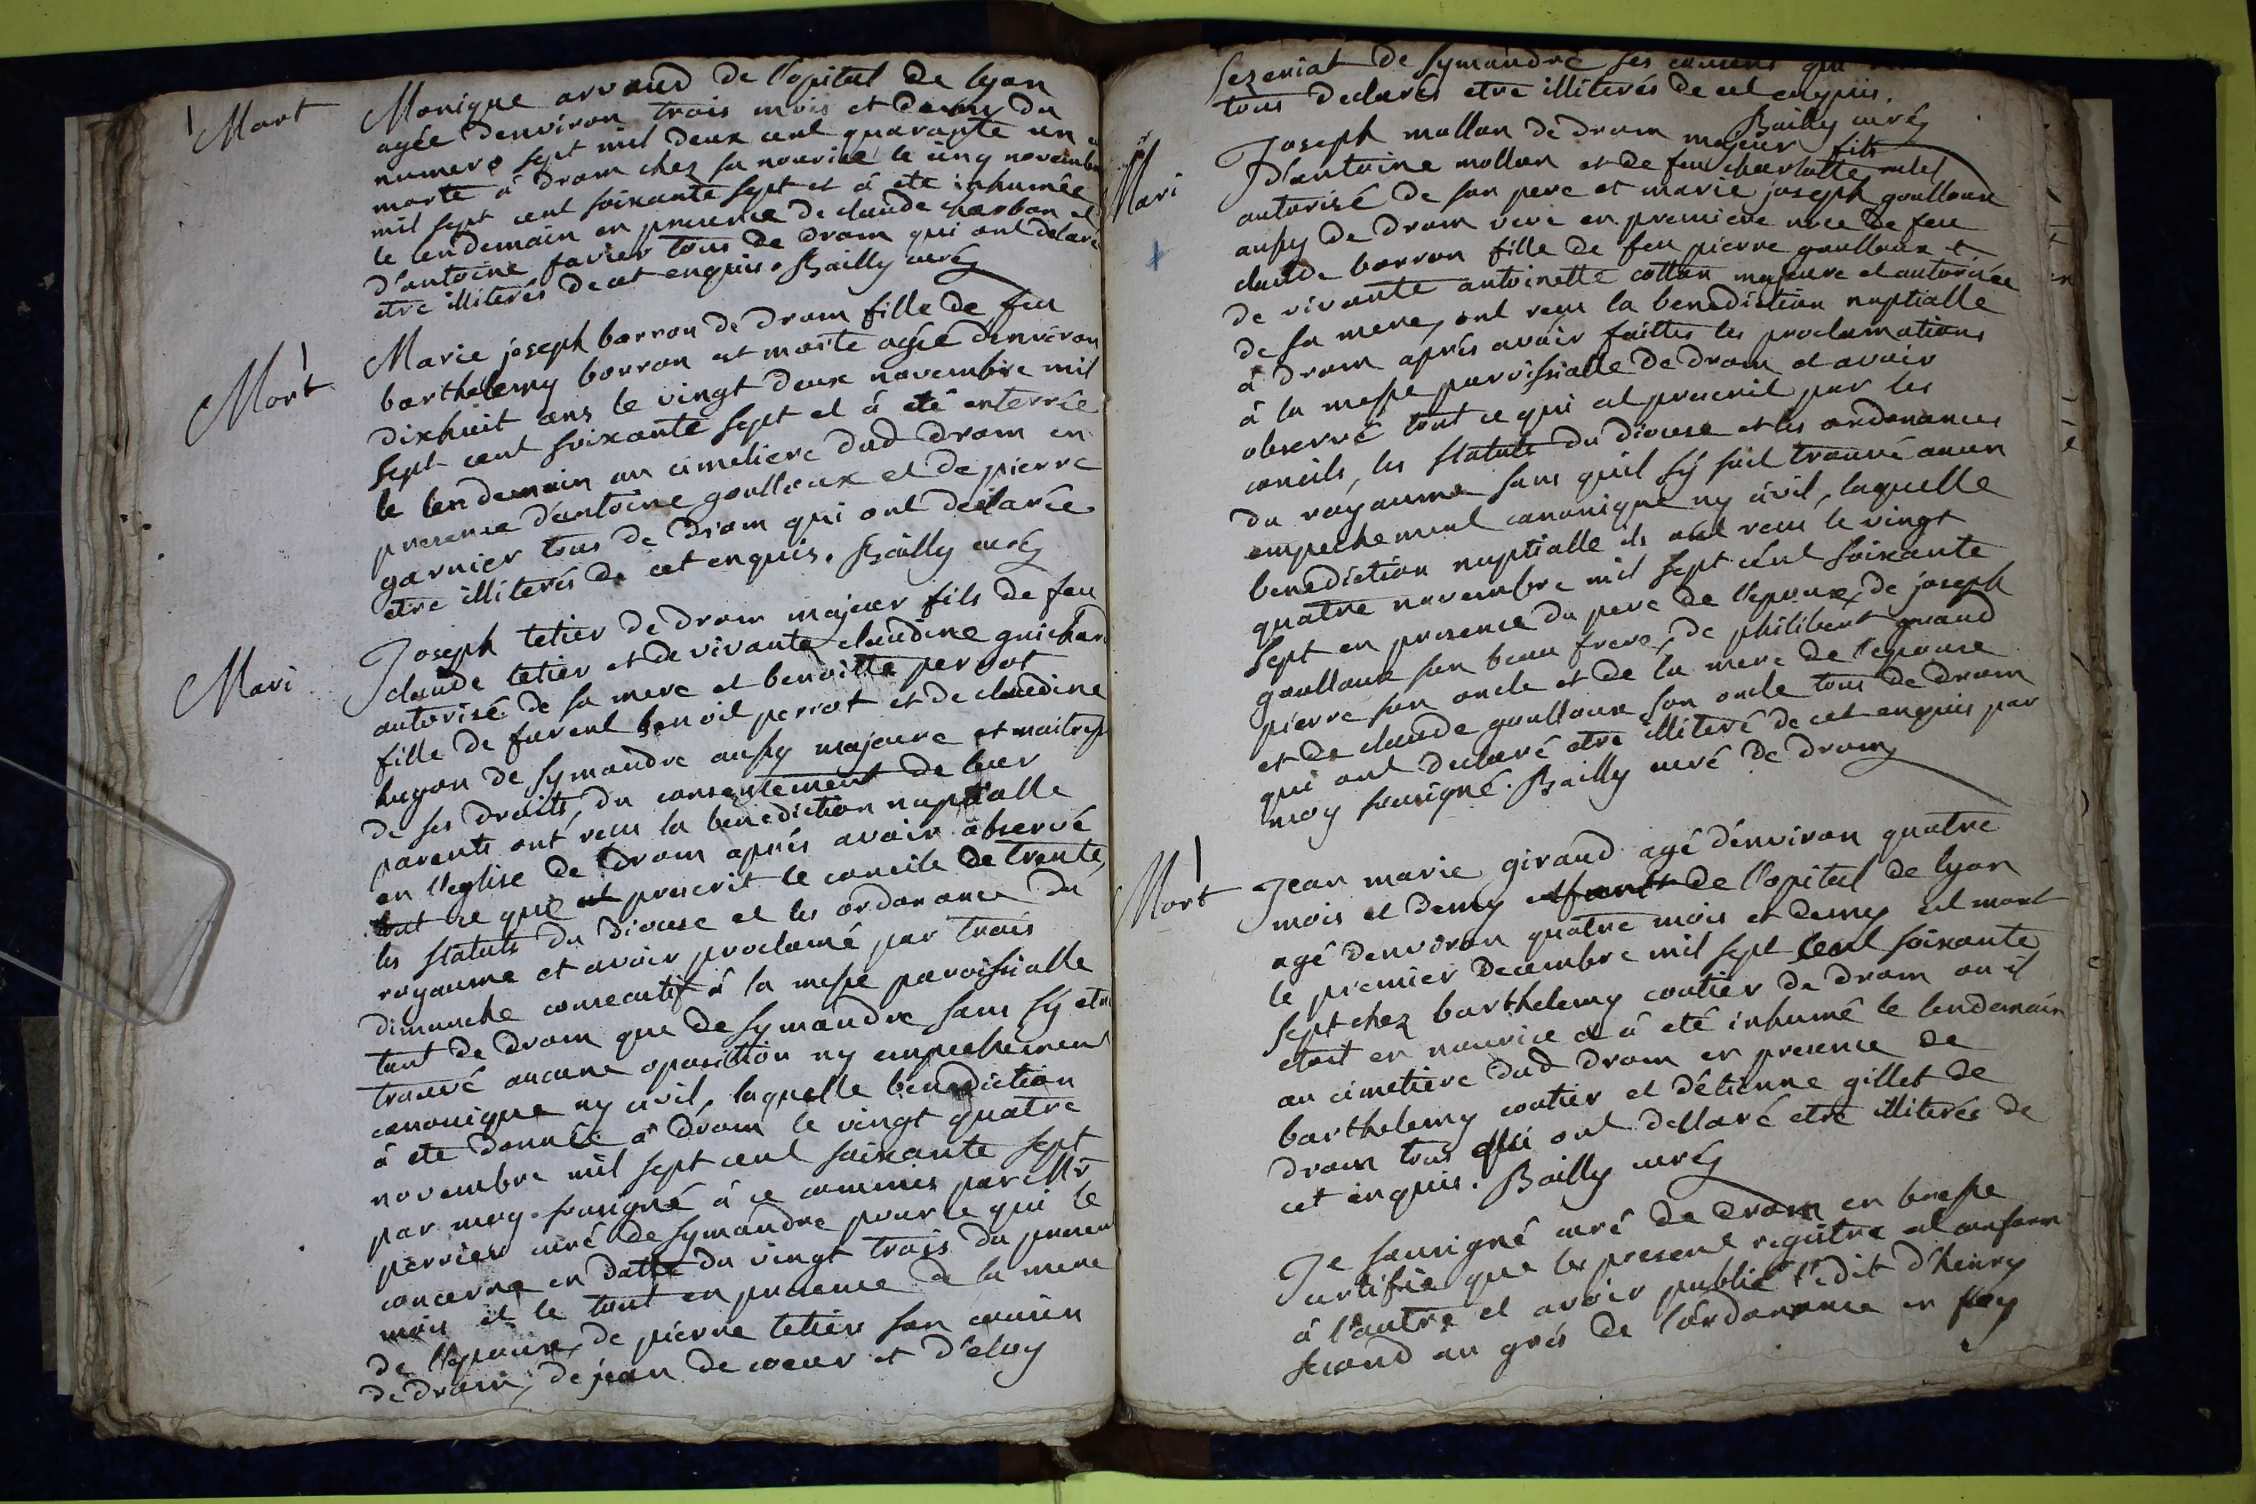 Mort
Monique arvaud de l'opital de lyon
agée denviron trois mois et demy du
numero sept mil deux cent quarante un
morte à drom chez sa nourice le cinq novembre
mil sept cent soixante sept et à ete inhumée
le lendemain en presence de claude charbon et
d'antoine favier tous de drom qui ont declaré
etre illiterés de cet enquis. Bailly curé
Mort
Marie joseph borron de drom fille de feu
barthelemy borron est morte agée denviron
dixhuit ans le vingt deux novembre mil
sept cent soixante sept et à été enterrée
le lendemain au cimetiere dud drom en
presence d'antoine goulloux et de pierre
garnier tous de drom qui ont declarée
etre illiterés de cet enquis. Bailly curé
Mari
Joseph tetier de drom majeur fils de feu
claude tetier et de vivante claudine guichard
autorisé de sa mere et benoitte perrot
fille de furent benoit perrot et de claudine
hugon de symandre aussy majeure et maitresse
de ses droits, du consentement de leur
parents ont reçu la benediction nuptialle
en l'eglise de drom après avoir observé
tout ce que prescrit le concile de trente,
les statuts du diocese et les ordonance du
royaume et avoir proclamé par trois
dimanche consecutif à la messe paroissialle
tant de drom que de symandre sans s'y etre
trouvé aucune oposition ny empechement
canonique ny civil, laquelle benediction
à ete donnée à drom le vingt quatre
novembre mil sept cent soixante sept
par moy sousigné à ce commis par Mr
perrier curé de symandre pour ce qui le
concerne en datte du vingt trois du present
mois et le tout en presence de la mere
de l'epoux, de pierre tetier son cousin
de drom, de jean de coeur et d'eloy
sezeriat de symandre ses cousins qui
tous declarés etre illiterés de cet enquis.
Bailly curé
Mari
Joseph mollon de drom majeur fils
d'antoine mollon et de feu charlotte
autorisé de son pere et marie joseph goulloux
aussy de drom veve en premiere noce de feu
claude borron fille de feu pierre goulloux et
de vivante antoinette cotton majeure et autorisée
de sa mere, ont reçu la benediction nuptialle
à drom aprés avoir faittes les proclamations
à la messe paroissialle de drom et avoir
observé tout ce qui est prescrit par les
conciles, les statuts du diocese et les ordonances
du royaume sans quil s'y soit trouvé aucun
empechement canonique ny civil, laquelle
benediction nuptialle ils ont reçu le vingt
quatre novembre mil sept cent soixante
sept en presence du pere de l'epoux, de joseph
goulloux son beau frere, de philibert
pierre son oncle et de la mere de l'epouse
et de claude goulloux son oncle tous de drom
qui ont declaré etre illiteré de cet enquis par
moy sousigné. Bailly curé de drom
Mort
Jean marie giraud agé d'environ quatre
mois et demy de l'opital de lyon
agé denviron quatre mois et demy est mort
le premier decembre mil sept cent soixante
sept chez barthelemy coutier de drom ou il
etoit en nourice et à eté inhumé le lendemain
au cimetiere dud drom en presence de
barthelemy coutier et d'étienne gillet de
drom tous qui ont declaré etre illiterés de
cet enquis. Bailly curé
Je sousigné curé de drom en bresse
certifie que le present registre est conforme
à l'autre et avoir publié l'edit d'henry
second au gré de l'ordonnance en foy